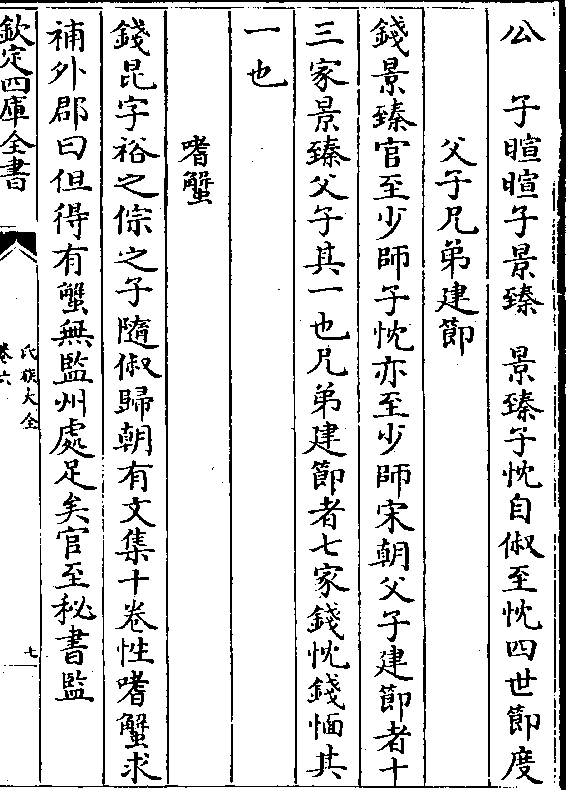 公　子暄暄子景臻　景臻子忱自俶至忱四世節度
父子兄弟建節
錢景臻官至少師子忱亦至少師宋朝父子建節者十
三家景臻父子其一也兄弟建節者七家錢忱錢愐其
一也
嗜蟹
錢昆字裕之倧之子隨俶歸朝有文集十卷性嗜蟹求
補外郡曰但得有蟹無監州處足矣官至秘書監
欽定四庫全書
氏族大全
卷六
七